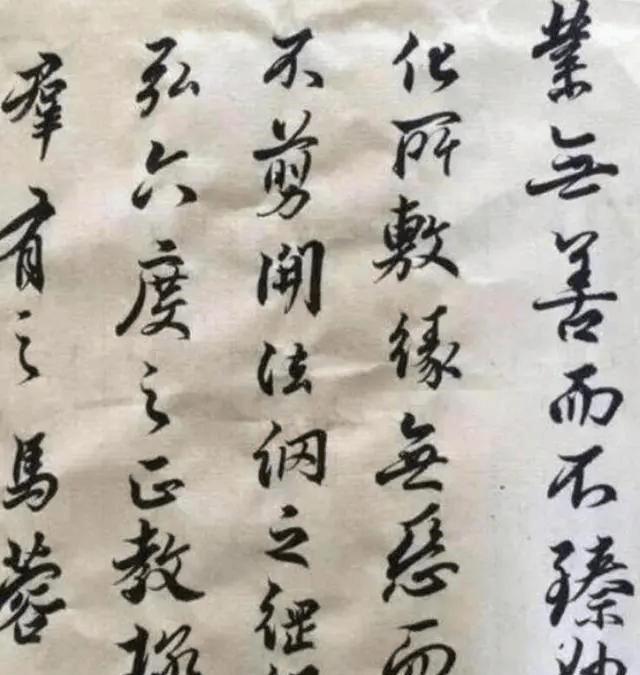 業無善而不臻妙
化所敷緣無惡而
不剪開法網之綱
弘六度之正教拯
羣有之馬蓉